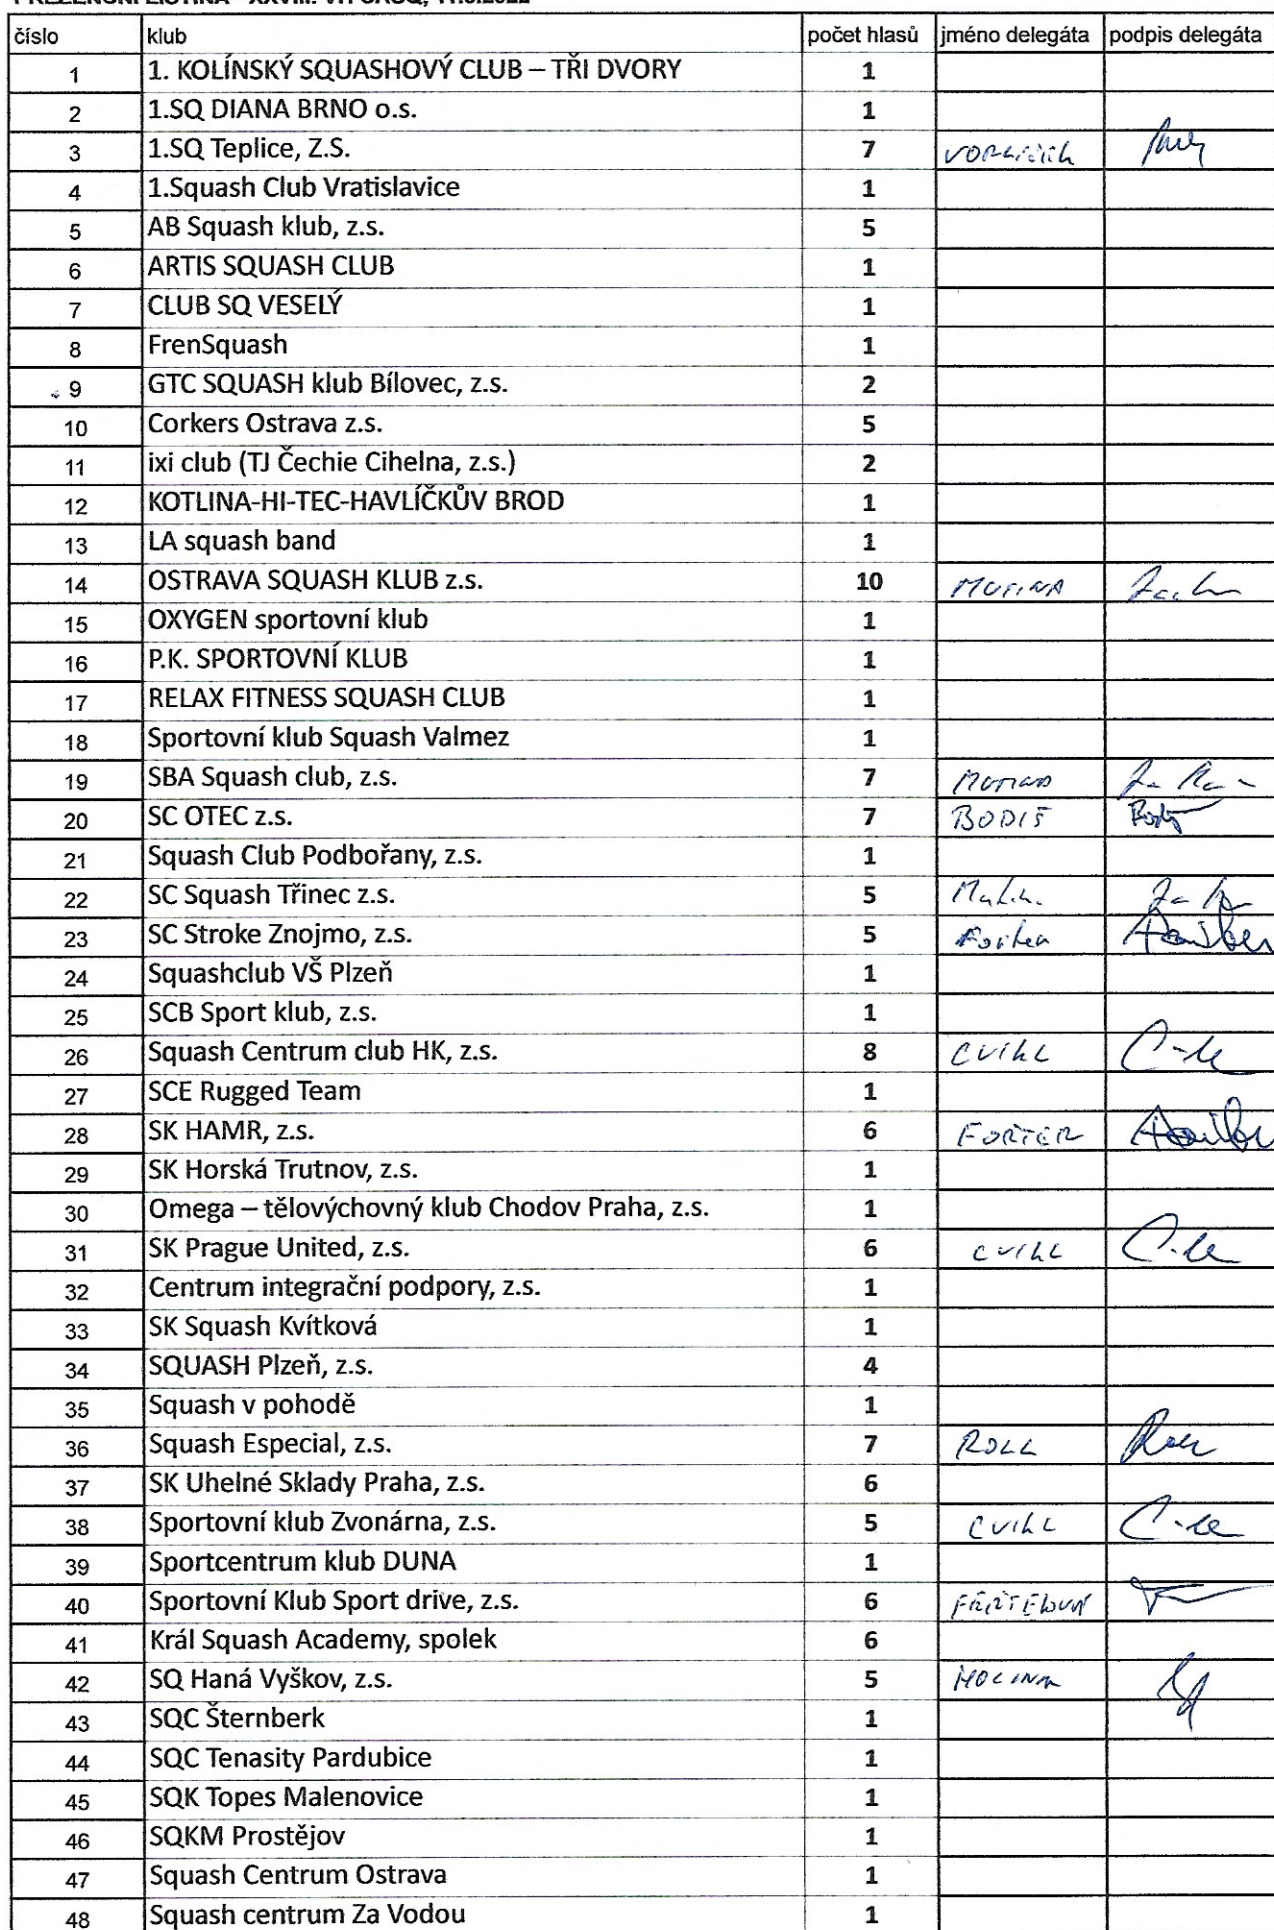 číslo klub počet hlasů jméno delegáta podpis delegáta
1 1. KOLÍNSKÝ SQUASHOVÝ CLUB – TŘI DVORY 1
2 1.SQ DIANA BRNO o.s. 1
3 1.SQ Teplice, Z.S. 7
4 1.Squash Club Vratislavice 1
5 AB Squash klub, z.s. 5
6 ARTIS SQUASH CLUB 1
7 CLUB SQ VESELÝ 1
8 FrenSquash 1
9 GTC SQUASH klub Bílovec, z.s. 2
10 Corkers Ostrava z.s. 5
11 ixi club (TJ Čechie Cihelna, z.s.) 2
12 KOTLINA-HI-TEC-HAVLÍČKŮV BROD 1
13 LA squash band 1
14 OSTRAVA SQUASH KLUB z.s. 10
15 OXYGEN sportovní klub 1
16 P.K. SPORTOVNÍ KLUB 1
17 RELAX FITNESS SQUASH CLUB 1
18 Sportovní klub Squash Valmez 1
19 SBA Squash club, z.s. 7
20 SC OTEC z.s. 7 BODIŠ
21 Squash Club Podbořany, z.s. 1
22 SC Squash Třinec z.s. 5
23 SC Stroke Znojmo, z.s. 5
24 Squashclub VŠ Plzeň 1
25 SCB Sport klub, z.s. 1
26 Squash Centrum club HK, z.s. 8 CVIKL
27 SCE Rugged Team 1
28 SK HAMR, z.s. 6 FORTER
29 SK Horská Trutnov, z.s. 1
30 Omega – tělovýchovný klub Chodov Praha, z.s. 1
31 SK Prague United, z.s. 6 CVIKL
32 Centrum integrační podpory, z.s. 1
33 SK Squash Kvítková 1
34 SQUASH Plzeň, z.s. 4
35 Squash v pohodě 1
36 Squash Especial, z.s. 7 ROLL
37 SK Uhelné Sklady Praha, z.s. 6
38 Sportovní klub Zvonárna, z.s. 5 CVIKL
39 Sportcentrum klub DUNA 1
40 Sportovní Klub Sport drive, z.s. 6
41 Král Squash Academy, spolek 6
42 SQ Haná Vyškov, z.s. 5
43 SQC Šternberk 1
44 SQC Tenasity Pardubice 1
45 SQK Topes Malenovice 1
46 SQKM Prostějov 1
47 Squash Centrum Ostrava 1
48 Squash centrum Za Vodou 1